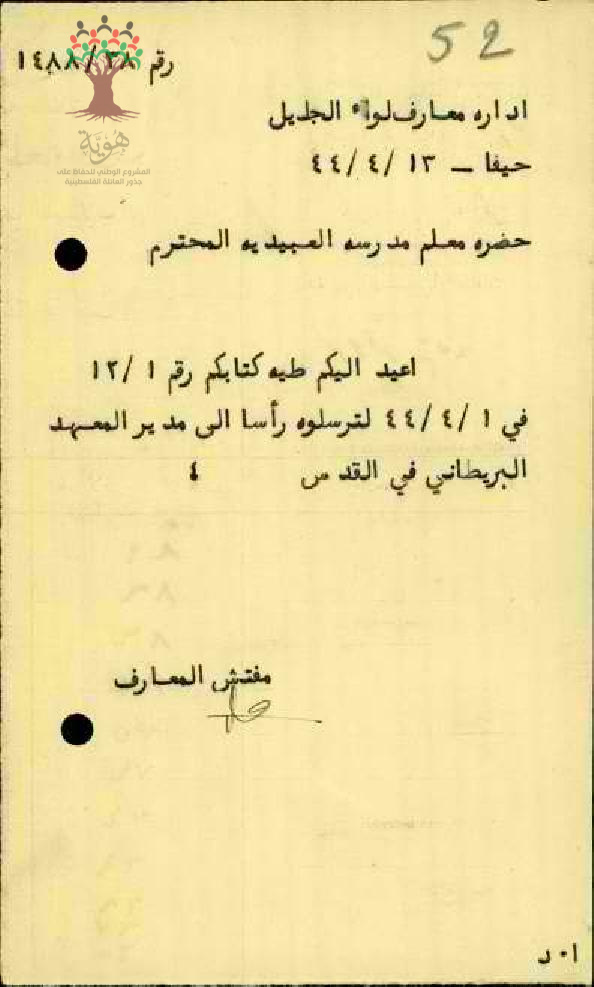 52
رقم ١٤٨٨/٣٨
هوية
المشروع الوطني للحفاظ على
جذور العائلة الفلسطينية
اداره معارف لواء الجليل
حيفا ــ ١٣ /٤ /٤٤
حضره معلم مدرسه العبيديه المحترم
اعيد اليكم طيه كتابكم رقم ١ /١٢
في ١ /٤ /٤٤ لترسلوه رأسا الى مدير المعهد
البريطاني في القدس ٤
مفتش المعارف
ا٠ د